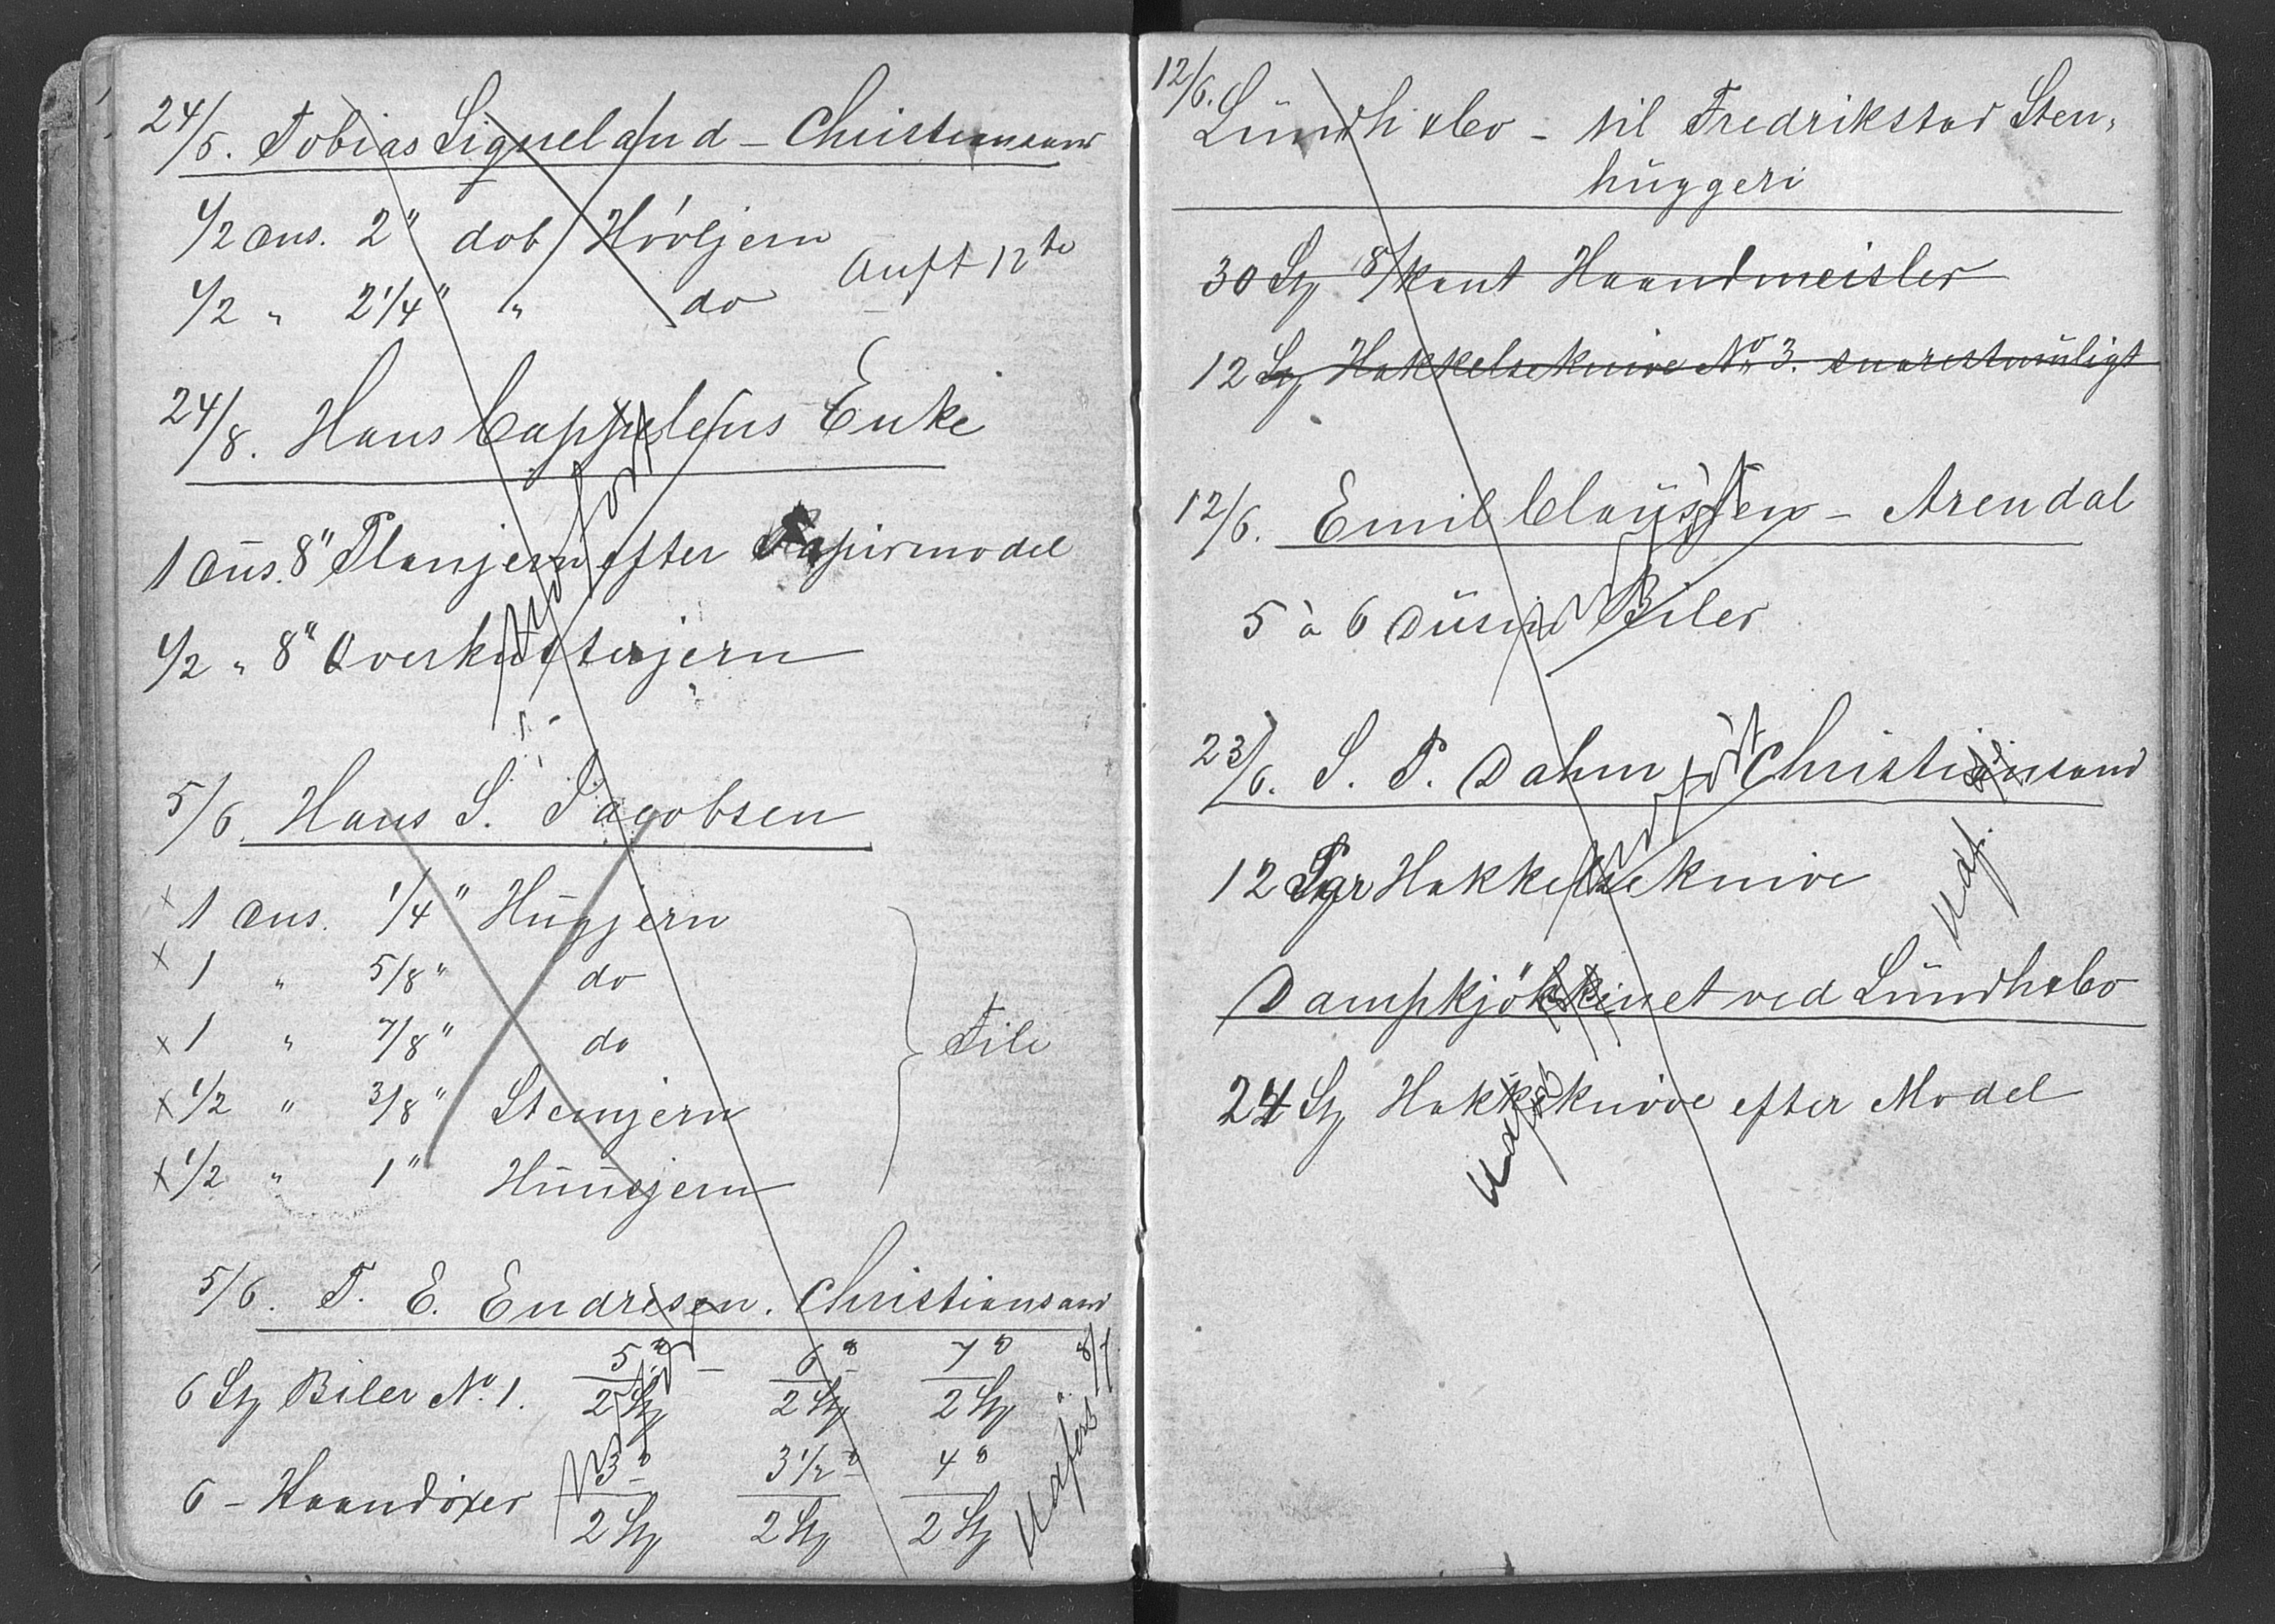 24/5. Tobias Signeland - Christiansand
1/2 Dus. 2" dob Høvljern
1/2 " 2 1/4" " do
Auft 12te
24/8. Hans Cappelens Enke
Udført
1 Düs. 8" Planjern efter Papirmodel
1/2 " 8" Overkutterjern
5/6. Hans S. Jacobsen
x 1 Dus. 1/4" Hügjern
x 1 " 5/8" do
x 1 " 7/8" do
x 1/2 " 3/8" Stemjern
x 1/2 " 1" Hüüljern
File
5/6. T. E. Endresen. Christiansand
6 Stk Biler No. 1. 5" - 6" 7"
2 Stk 2 Stk 2 Stk
6 - Haandøxer 3" 3 1/2" 4"
2 Stk 2 Stk 2 Stk
Udført
Udført 8/7
12/6. Lündh &Co - til Fredrikstad Sten,
hüggeri
30 Stk 8/kant Haandmeisler
12 Stk Hakkelseknive No 3. snarestmüligt
12/6. Emil Claüssen - Arendal
Udført
5 à 6 Düsin Biler
23/6. S. P. Dahm Christiansand
Udført
12 Par Hakkelseknive
Udf.
Dampkjökkinet ved Lündh &Co
24 Stk Hakkeknive efter Model
Udført